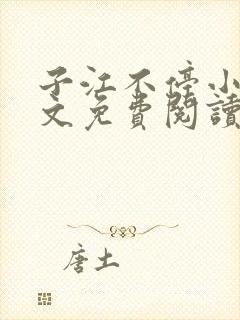 子江不停小
文免費閱讀
唐土